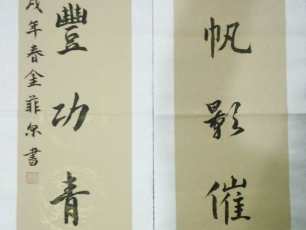 帆影催
豐功青
戌年春金菲尔書